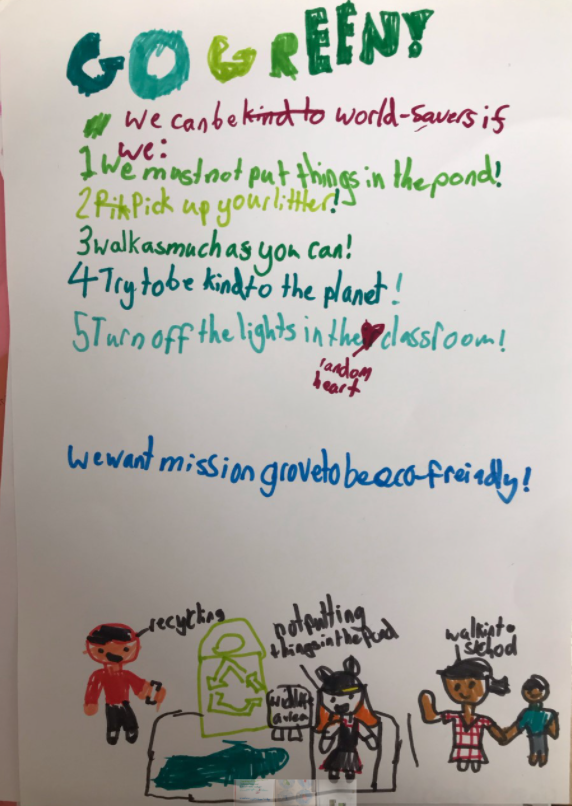 GO GREEN!
we can be kind to world-savers if
we:
1 We must not put things in the pond!
2 Pik Pick up your littler!
3 walk as much as you can!
4 Try to be kind to the planet!
5 Turn off the lights in the classroom!
random
heart
we want mission grove to be eco-freiadly!
recycling
not putting
things in the pond
walkin to
school
wildlife
area